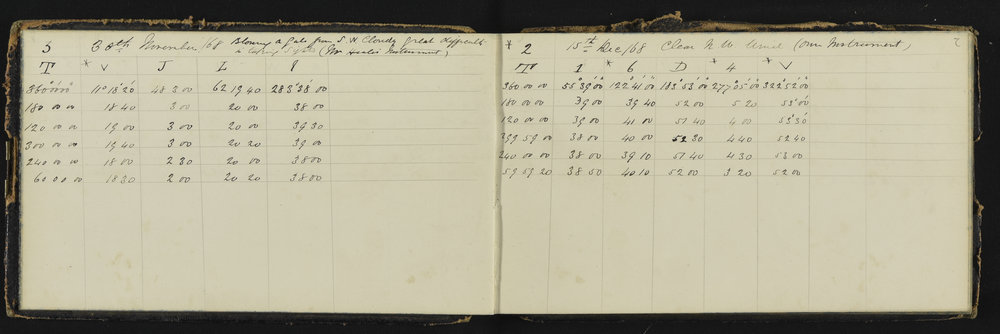 3 30th November /68 Blowing a gale from S.W. Cloudy great difficulty
in taking (Mr Instrument)
T * V J L 8
360 00 00 11° 18' 20 48 3 00 62 19 40 283° 38' 00
180 00 00 18 40 3 00 20 00 38 00
120 00 00 19 00 3 00 20 00 39 30
300 00 00 19 40 3 00 20 20 39 00
240 00 00 18 00 2 30 20 00 38 00
60 00 00 18 30 2 00 20 20 38 00
* 2 15th Dec /68 Clear N.W. Wind (Own Instrument) 2
T * 1 * 6 D * 4 * V
360 00 00 55° 39' 00" 122° 41' 00" 183° 53' 00" 277° 05' 00" 322° 52' 00"
180 00 00 39 00 39 40 52 00 5 20 53' 00
120 00 00 39 00 41 00 51 40 4 00 53' 30
299 59 00 38 00 40 00 52 30 4 40 52 40
240 00 00 38 00 39 10 51 40 4 30 53 00
59 59 20 38 50 40 10 52 00 3 20 52 00